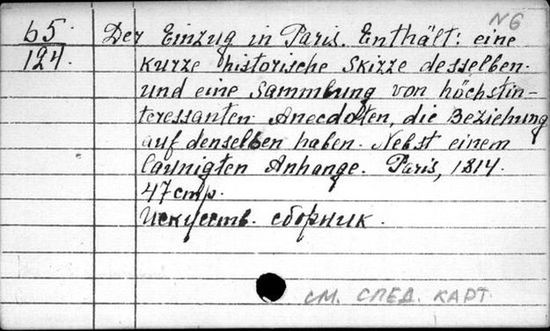 N6
65. Der Einzug in Paris. Enthält: eine
124. kurze historische Skizze desselben.
und eine Sammlung von höchstin-
teressanten Anecdoten, die Beziehung
auf denselben haben. Nebst einem
launigten Anhange. Paris, 1814.
47 стр.
Искусств. сборник.
СМ. СПЕД. КАРТ.